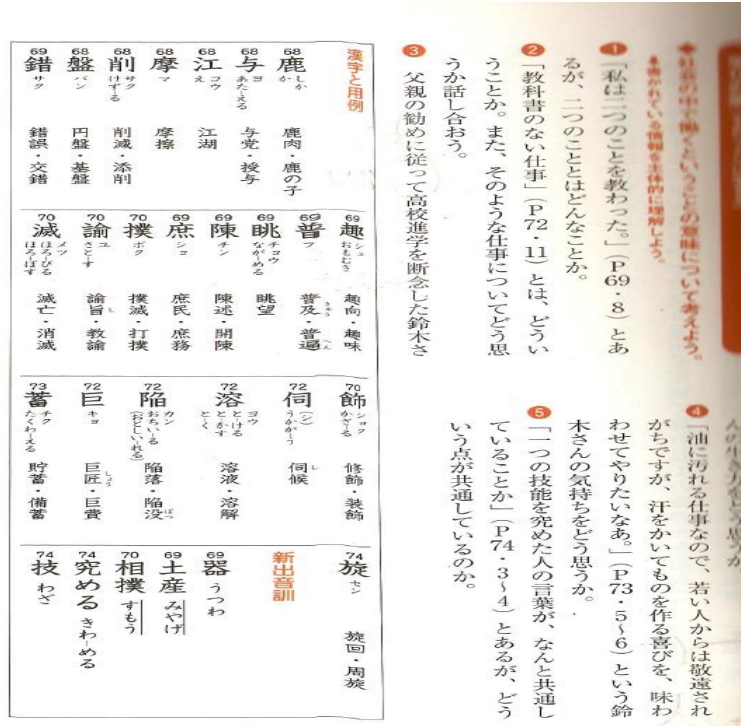 ◆社会の中で働くということの意味について考えよう。
↓書かれている情報を主体的に理解しよう。
❶「私は二つのことを教わった。」(P69・8)とあ
るが、二つのこととはどんなことか。
❷「教科書のない仕事」(P72・11)とは、どうい
うことか。また、そのような仕事についてどう思
うか話し合おう。
❸　父親の勧めに従って高校進学を断念した鈴木さ
んの生き方をどう思うか。
❹「油に汚れる仕事なので、若い人からは敬遠され
がちですが、汗をかいてものを作る喜びを、味わ
わせてやりたいなあ。」(P73・5〜6)という鈴
木さんの気持ちをどう思うか。
❺「一つの技能を究めた人の言葉が、なんと共通し
ていることか」(P74・3〜4)とあるが、どう
いう点が共通しているのか。
漢字と用例
68 鹿 しか か 鹿肉・鹿の子
68 与 ヨ あた-える 与党・授与
68 江 コウ え 江湖
68 摩 マ 摩擦
68 削 サク けず-る 削減・添削
68 盤 バン 円盤・基盤
69 錯 サク 錯誤・交錯
69 趣 シュ おもむき 趣向・趣味
69 普 フ 普及・普遍 きゅう へん
69 眺 チョウ なが-める 眺望
69 陳 チン 陳述・開陳
69 庶 ショ 庶民・庶務
70 撲 ボク 撲滅・打撲
70 諭 ユ さと-す 諭旨・教諭 し
70 滅 メツ ほろ-びる ほろ-ぼす 滅亡・消滅
70 飾 ショク かざ-る 修飾・装飾
72 伺 (シ) うかが-う 伺候 し
72 溶 ヨウ と-ける と-かす と-く 溶液・溶解
72 陥 カン おちい-る (おとしい-れる) 陥落・陥没 ぼつ
72 巨 キョ 巨匠・巨費 しょう
73 蓄 チク たくわ-える 貯蓄・備蓄
74 旋 セン 旋回・周旋
新出音訓
69 器 うつわ
69 土産 みやげ
70 相撲 すもう
74 究める きわ-める
74 技 わざ